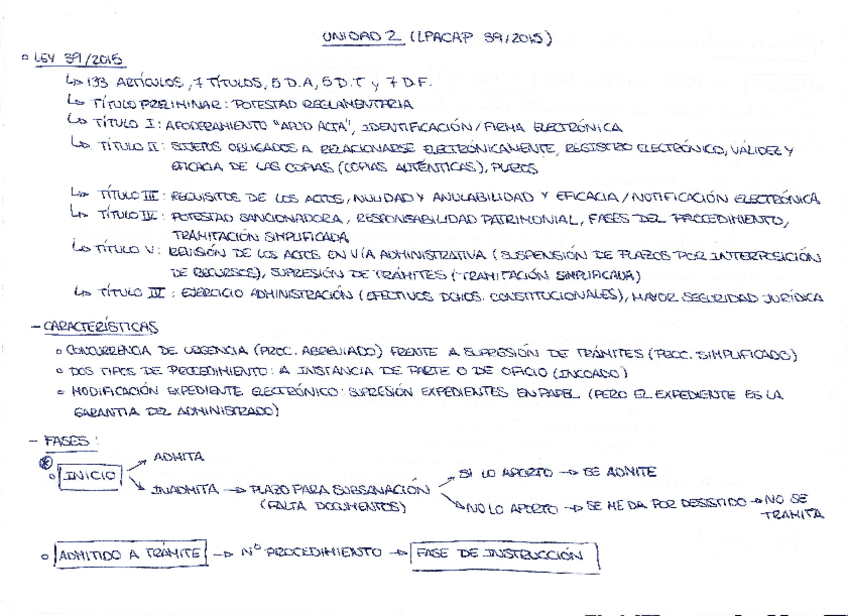 UNIDAD 2 (LPACAP 39/2015)
▫ LEY 39/2015
↳ 133 ARTÍCULOS, 7 TÍTULOS, 5 D.A, 5 D.T y 7 D.F.
↳ TÍTULO PRELIMINAR: POTESTAD REGLAMENTARIA
↳ TÍTULO I: APODERAMIENTO "APUD ACTA", IDENTIFICACIÓN/FIRMA ELECTRÓNICA
↳ TÍTULO II: SUJETOS OBLIGADOS A RELACIONARSE ELECTRÓNICAMENTE, REGISTRO ELECTRÓNICO, VÁLIDEZ Y
EFICACIA DE LAS COPIAS (COPIAS AUTÉNTICAS), PLAZOS
↳ TÍTULO III: REQUISITOS DE LOS ACTOS, NULIDAD Y ANULABILIDAD Y EFICACIA/NOTIFICACIÓN ELECTRÓNICA
↳ TÍTULO IV: POTESTAD SANCIONADORA, RESPONSABILIDAD PATRIMONIAL, FASES DEL PROCEDIMIENTO,
TRAMITACIÓN SIMPLIFICADA
↳ TÍTULO V: REVISIÓN DE LOS ACTOS EN VÍA ADMINISTRATIVA (SUSPENSIÓN DE PLAZOS POR INTERPOSICIÓN
DE RECURSOS), SUPRESIÓN DE TRÁMITES (TRAMITACIÓN SIMPLIFICADA)
↳ TÍTULO IV: EJERCICIO ADMINISTRACIÓN (EFECTIVOS DCHOS. CONSTITUCIONALES), MAYOR SEGURIDAD JURÍDICA
- CARACTERÍSTICAS
∘ CONCURRENCIA DE URGENCIA (PROC. ABREVIADO) FRENTE A SUPRESIÓN DE TRÁMITES (PROC. SIMPLIFICADO)
∘ DOS TIPOS DE PROCEDIMIENTO: A INSTANCIA DE PARTE O DE OFICIO (INCOADO)
∘ MODIFICACIÓN EXPEDIENTE ELECTRÓNICO: SUPRESIÓN EXPEDIENTES EN PAPEL (PERO EL EXPEDIENTE ES LA
GARANTIA DEL ADMINISTRADO)
- FASES:
ADMITA
∘ INICIO
INADMITA → PLAZO PARA SUBSANACIÓN
(FALTA DOCUMENTOS)
SI LO APORTO → SE ADMITE
NO LO APORTO → SE ME DA POR DESISTIDO → NO SE
TRAMITA
∘ ADMITIDO A TRÁMITE → Nº PROCEDIMIENTO → FASE DE INSTRUCCIÓN